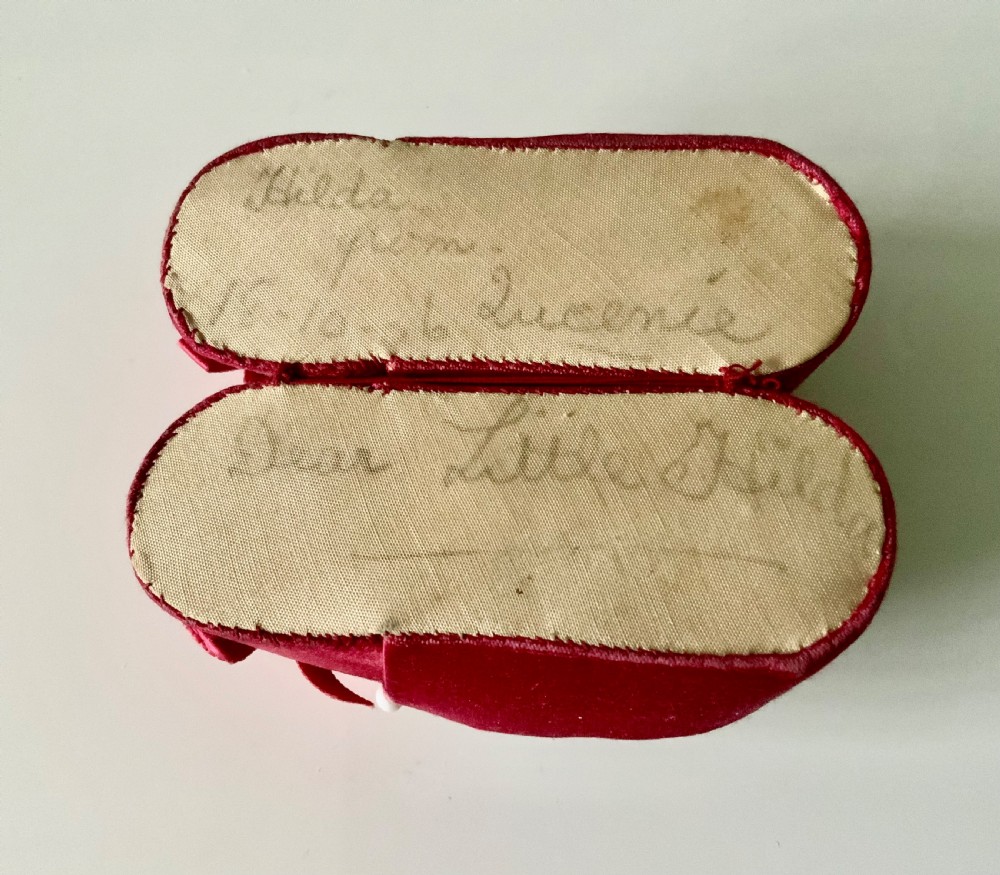 Hilda
from.
15-10-26 Lucenie
Dear Little Hilda